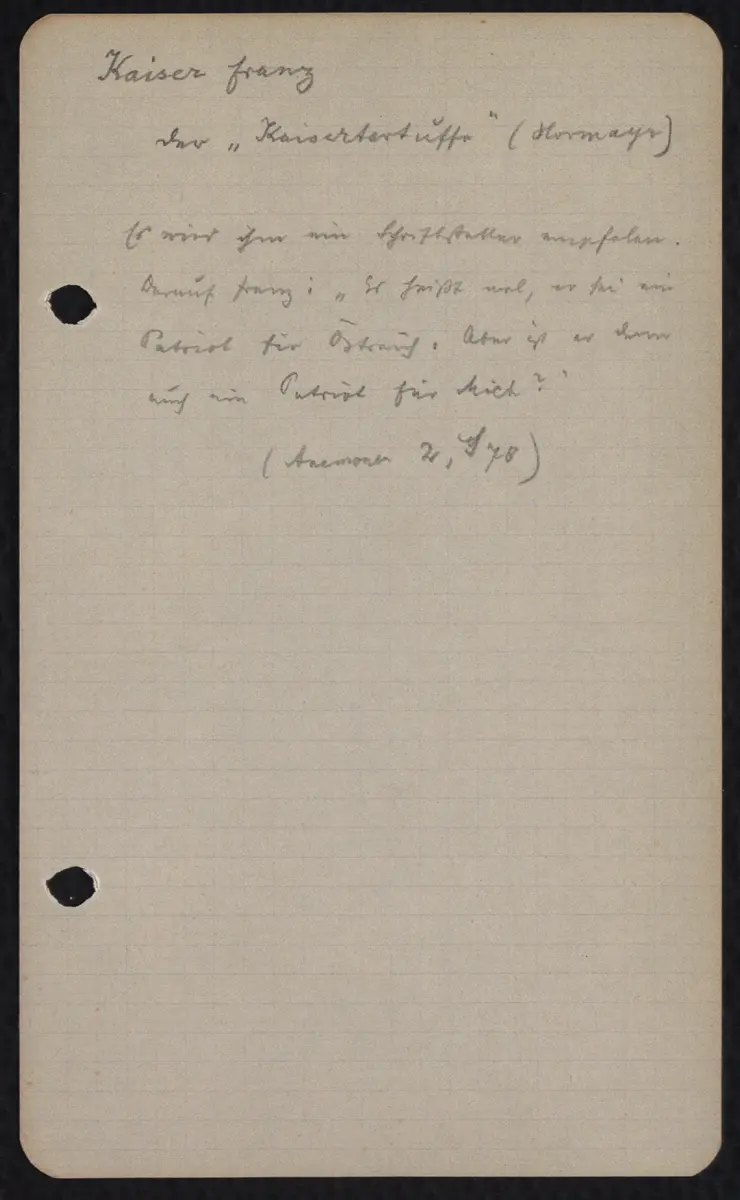 Kaiser Franz
der „Kaisertartuffe" (Hormayr)
Es wird ihm ein Schriftsteller empfolen.
Darauf Franz: „Es heißt wol, er sei ein
Patriot für Östreich. Aber ist er denn
auch ein Patriot für Mich?"
(Anemonen 2, S 78)